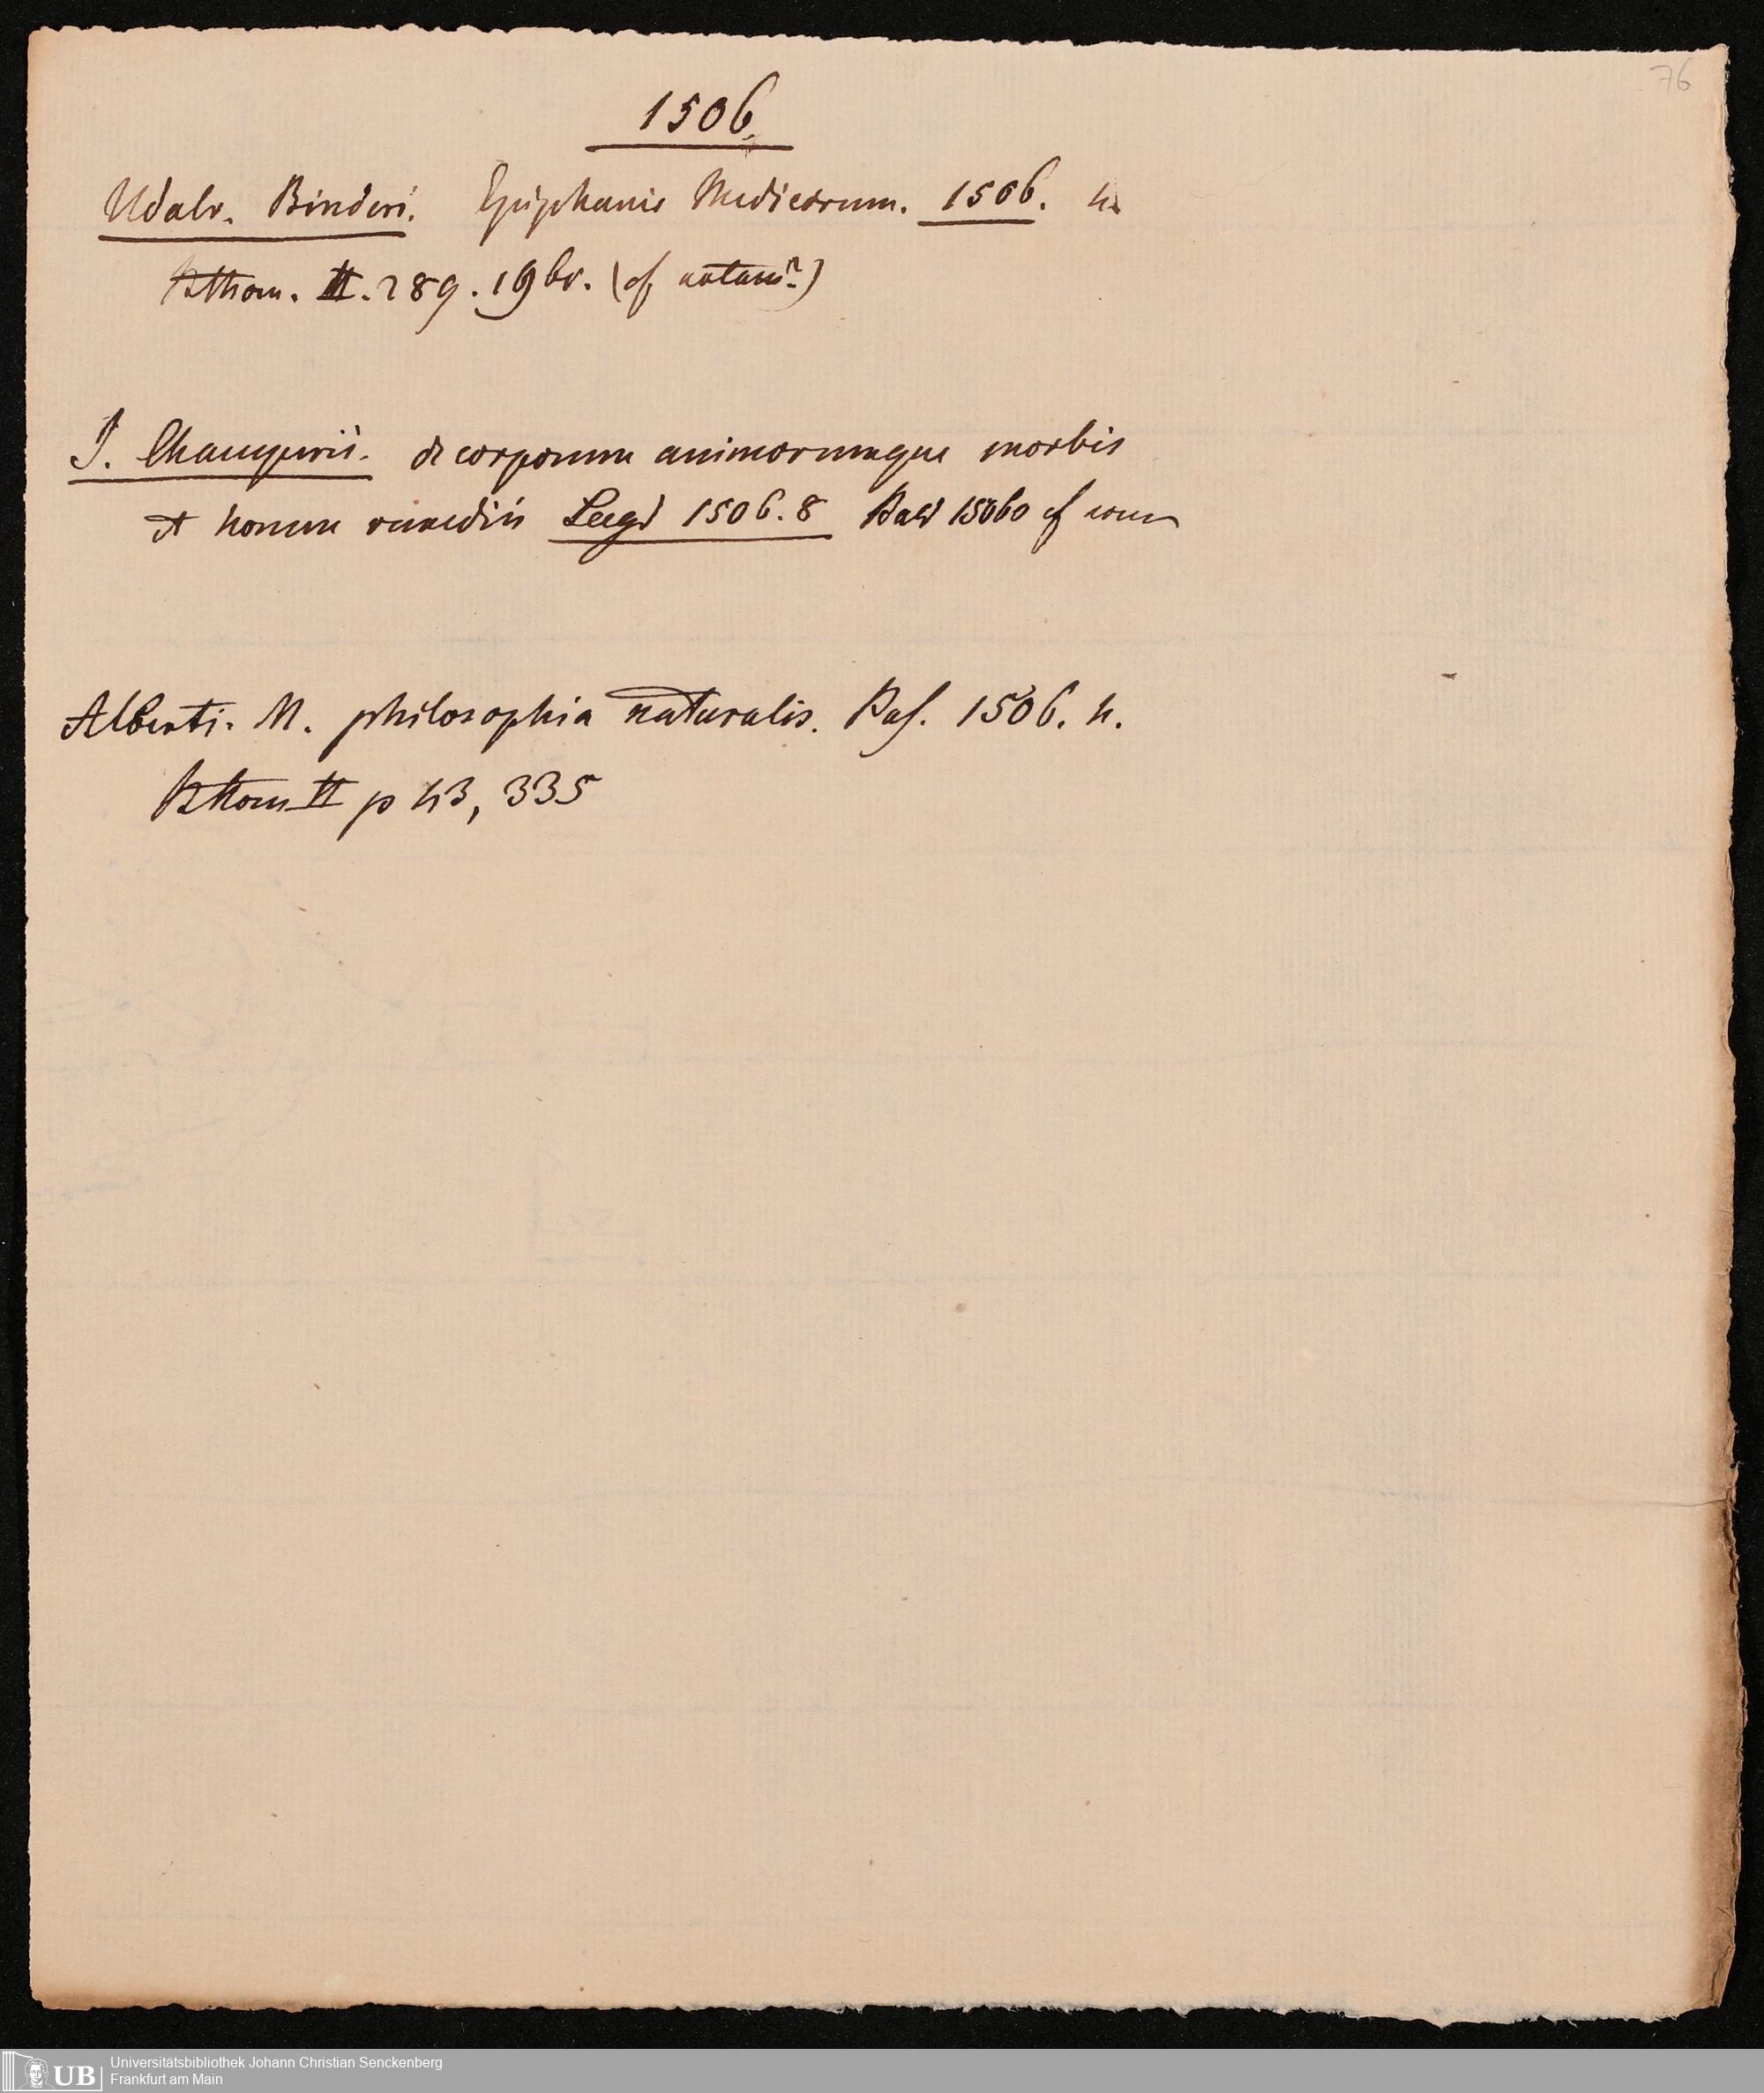 76
1506.
Udalr. Binderi. Epiphanie Medicorum. 1506. 4
Bthom. II. 289. 19 br. (cf notam?)
J. Champerii. de corporum animorumque morbis
et horum remediis Lugd 1506. 8 cf
Alberti. M. philosophia naturalis. Bas. 1506. 4.
Bthom II p 43, 335
UB
Universitätsbibliothek Johann Christian Senckenberg
Frankfurt am Main